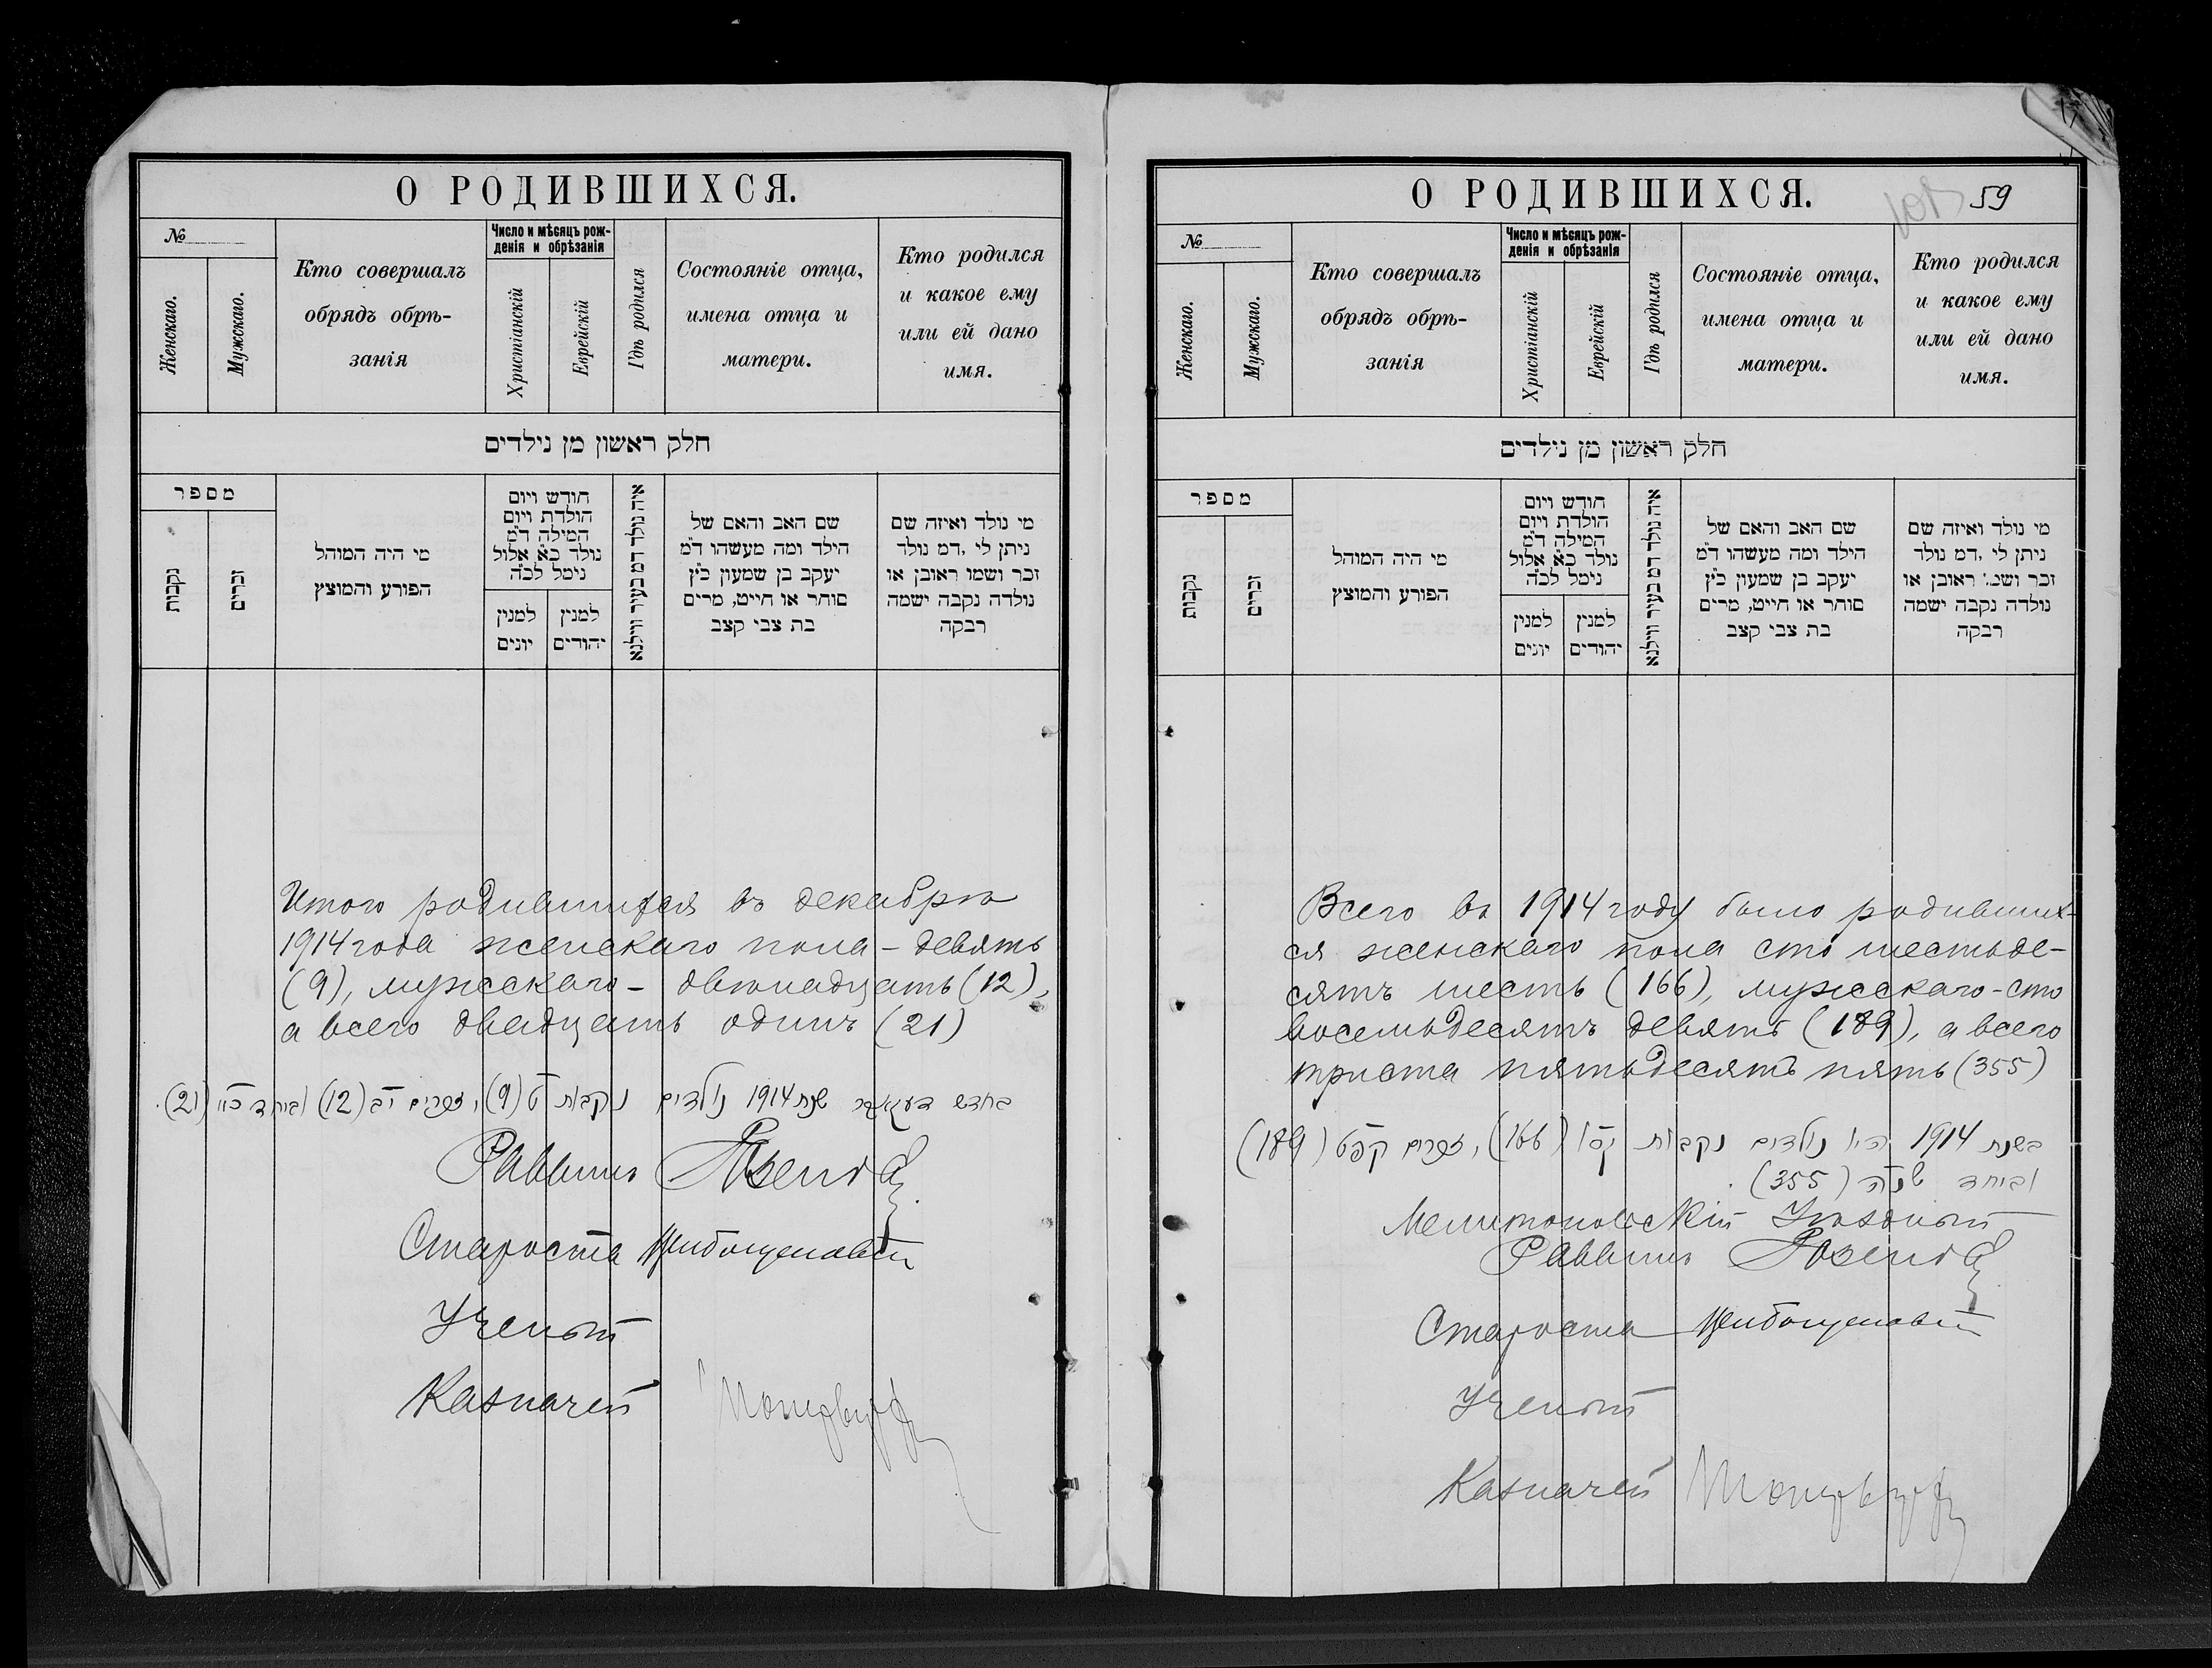 О РОДИВШИХСЯ.
№
Женскаго.
Мужскаго.
Кто совершалъ
обрядъ обрѣ-
занія
Число и мѣсяцъ рож-
денія и обрѣзанія
Христіанскій
Еврейскій
Гдѣ родился
Состояніе отца,
имена отца и
матери.
Кто родился
и какое ему
или ей дано
имя.
חלק ראשון מן נילדים
מספר
נקבות
זכרים
מי היה המוהל
הפורע והמוצץ
חודש ויום
הולדת ויום
המילה ד״מ
נולד כ״א אלול
נימל לכ״ה
למנין
יונים
למנין
יהודים
איה נולד דמ בעיר ווילנא
שם האב והאם של
הילד ומה מעשהו ד״מ
יעקב בן שמעון כ״ץ
סוחר או חייט, מרים
בת צבי קצב
מי נולד ואיזה שם
ניתן לי ,דמ נולד
זכר ושמו ראובן או
נולדה נקבה ישמה
רבקה
Итого родившихся въ декабрѣ
1914 года женскаго пола – девять
(9), мужскаго – двѣнадцать (12),
а всего двадцать одинъ (21)
בחדש דעקאבר שנת 1914 נולדים נקבות ט (9), זכרים יב (12) וביחד כ״א (21).
Раввинъ
Староста
Ученый
Казначей
О РОДИВШИХСЯ.
59
№
Женскаго.
Мужскаго.
Кто совершалъ
обрядъ обрѣ-
занія
Число и мѣсяцъ рож-
денія и обрѣзанія
Христіанскій
Еврейскій
Гдѣ родился
Состояніе отца,
имена отца и
матери.
Кто родился
и какое ему
или ей дано
имя.
חלק ראשון מן נילדים
מספר
נקבות
זכרים
מי היה המוהל
הפורע והמוצץ
חודש ויום
הולדת ויום
המילה ד״מ
נולד כ״א אלול
נימל לכ״ה
למנין
יונים
למנין
יהודים
איה נולד דמ בעיר ווילנא
שם האב והאם של
הילד ומה מעשהו ד״מ
יעקב בן שמעון כ״ץ
סוחר או חייט, מרים
בת צבי קצב
מי נולד ואיזה שם
ניתן לי ,דמ נולד
זכר ושמ׳ ראובן או
נולדה נקבה ישמה
רבקה
Всего въ 1914 году было родивших-
ся женскаго пола сто шестьде-
сятъ шесть (166), мужскаго – сто
восемьдесятъ девять (189), а всего
триста пятьдесятъ пять (355)
בשנת 1914 היו נולדים נקבות קסו (166), זכרים קפט (189)
וביחד שנה (355).
Мелитопольскій Уѣздный
Раввинъ
Староста
Ученый
Казначей